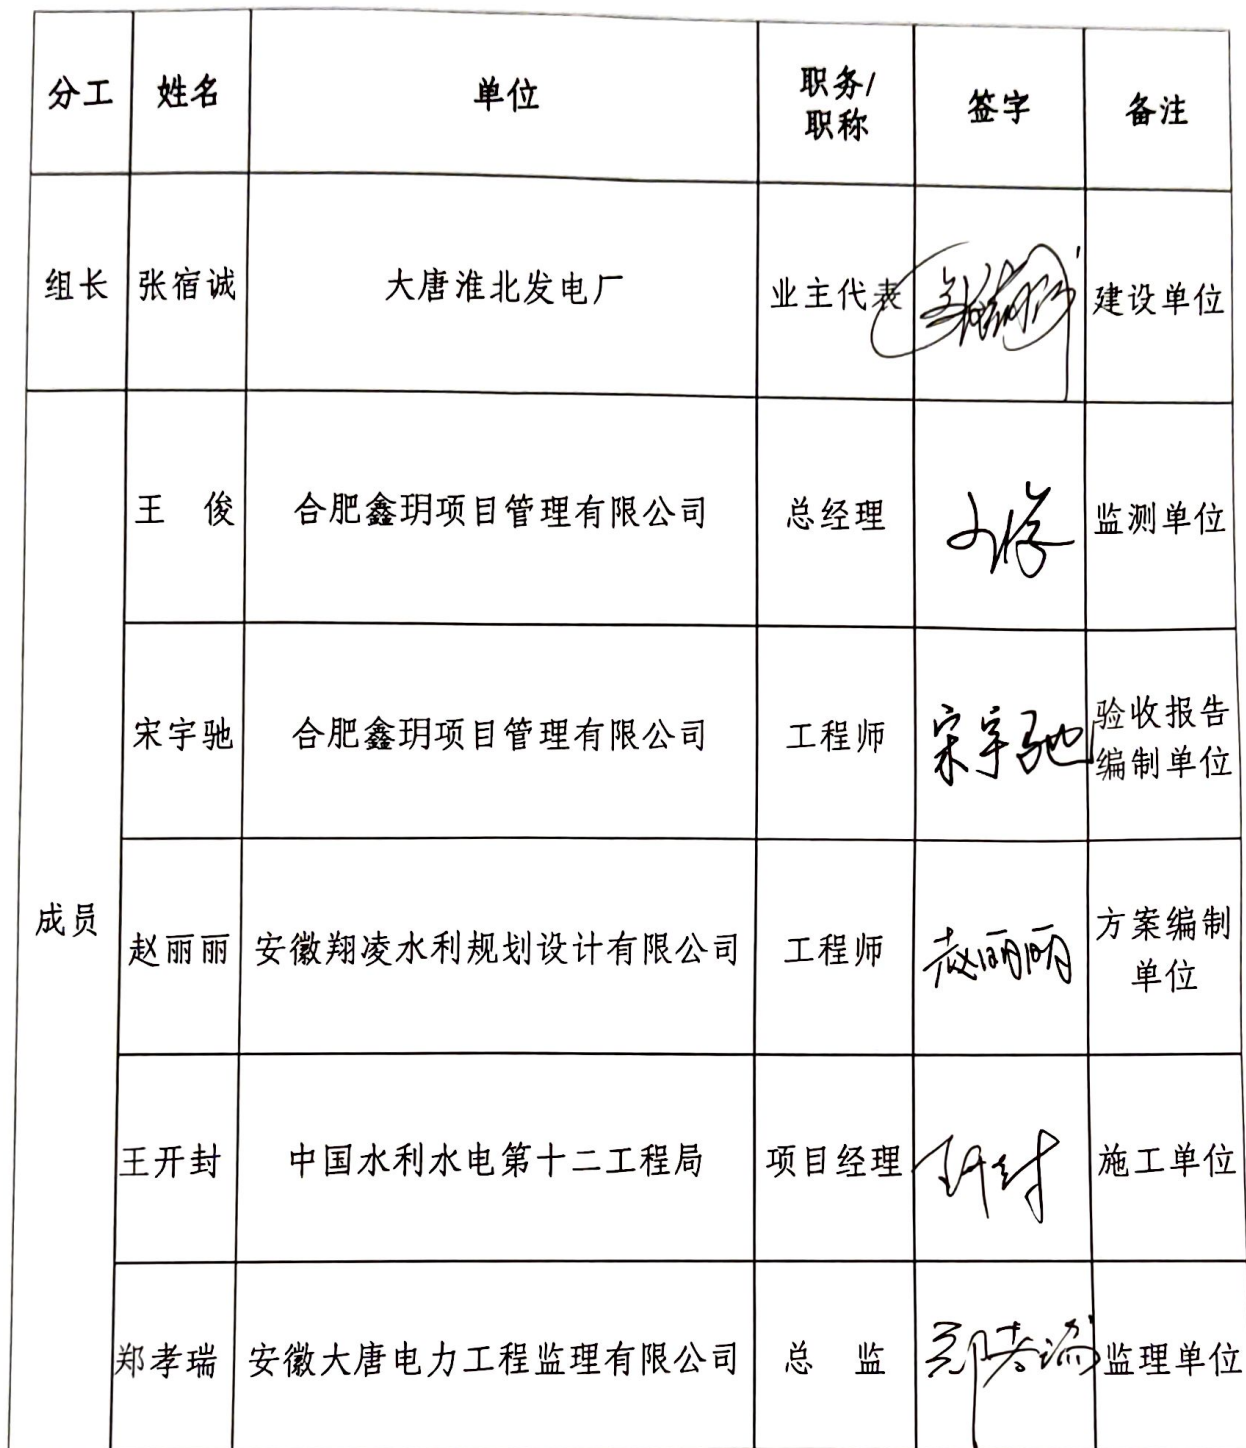 分工 姓名 单位 职务/ 签字 备注
职称
组长 张宿诚 大唐淮北发电厂 业主代表 建设单位
王 俊 合肥鑫玥项目管理有限公司 总经理 监测单位
宋宇驰 合肥鑫玥项目管理有限公司 工程师 宋宇驰 验收报告
编制单位
成员
赵丽丽 安徽翔凌水利规划设计有限公司 工程师 赵丽丽 方案编制
单位
王开封 中国水利水电第十二工程局 项目经理 王开封 施工单位
郑孝瑞 安徽大唐电力工程监理有限公司 总 监 郑孝瑞 监理单位